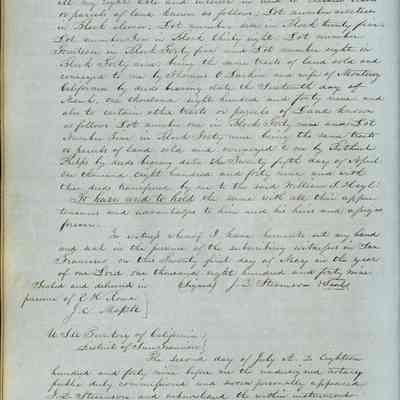 all my right title and interest in and to certain tracts
or parcels of land known as follows; Lot number
in Block eleven, Lot number six in Block twenty five
Lot number two in Block thirty eight, Lot number
Fourteen in Block forty five and Lot number eight in
Block Forty nine being the same tracts of land sold and
conveyed to me by Thomas O Larkin and wife of Monterey
California by deeds bearing date the Sixteenth day of
March, one thousand eight hundred and forty nine and
also to certain other tracts or parcels of Land known
as follows Lot number one in Block Forty nine and Lot
Number Four in Block Forty nine being the same tracts
or parcels of land sold and conveyed to me by
Phelps by deeds bearing date the Twenty fifth day of April
one thousand eight hundred and forty nine and with
these deeds transferred by me to the said William S
To have and to hold the same with all their appur-
tenances and advantages to him and his heirs and assigns
forever.
In witness whereof I have hereunto set my hand
and seal in the presence of the subscribing witnesses in San
Francisco on this Twenty first day of May in the year
of our Lord one thousand eight hundred and forty nine
Sealed and delivered in Signed J. D. Stevenson Seal
presence of E. H.
J. C.
U. S. Territory of California
District of San Francisco
The second day of July A. D. Eighteen
hundred and forty nine before me the undersigned notary
public duly commissioned and sworn personally appeared
J. D. Stevenson and acknowledged the within instrument